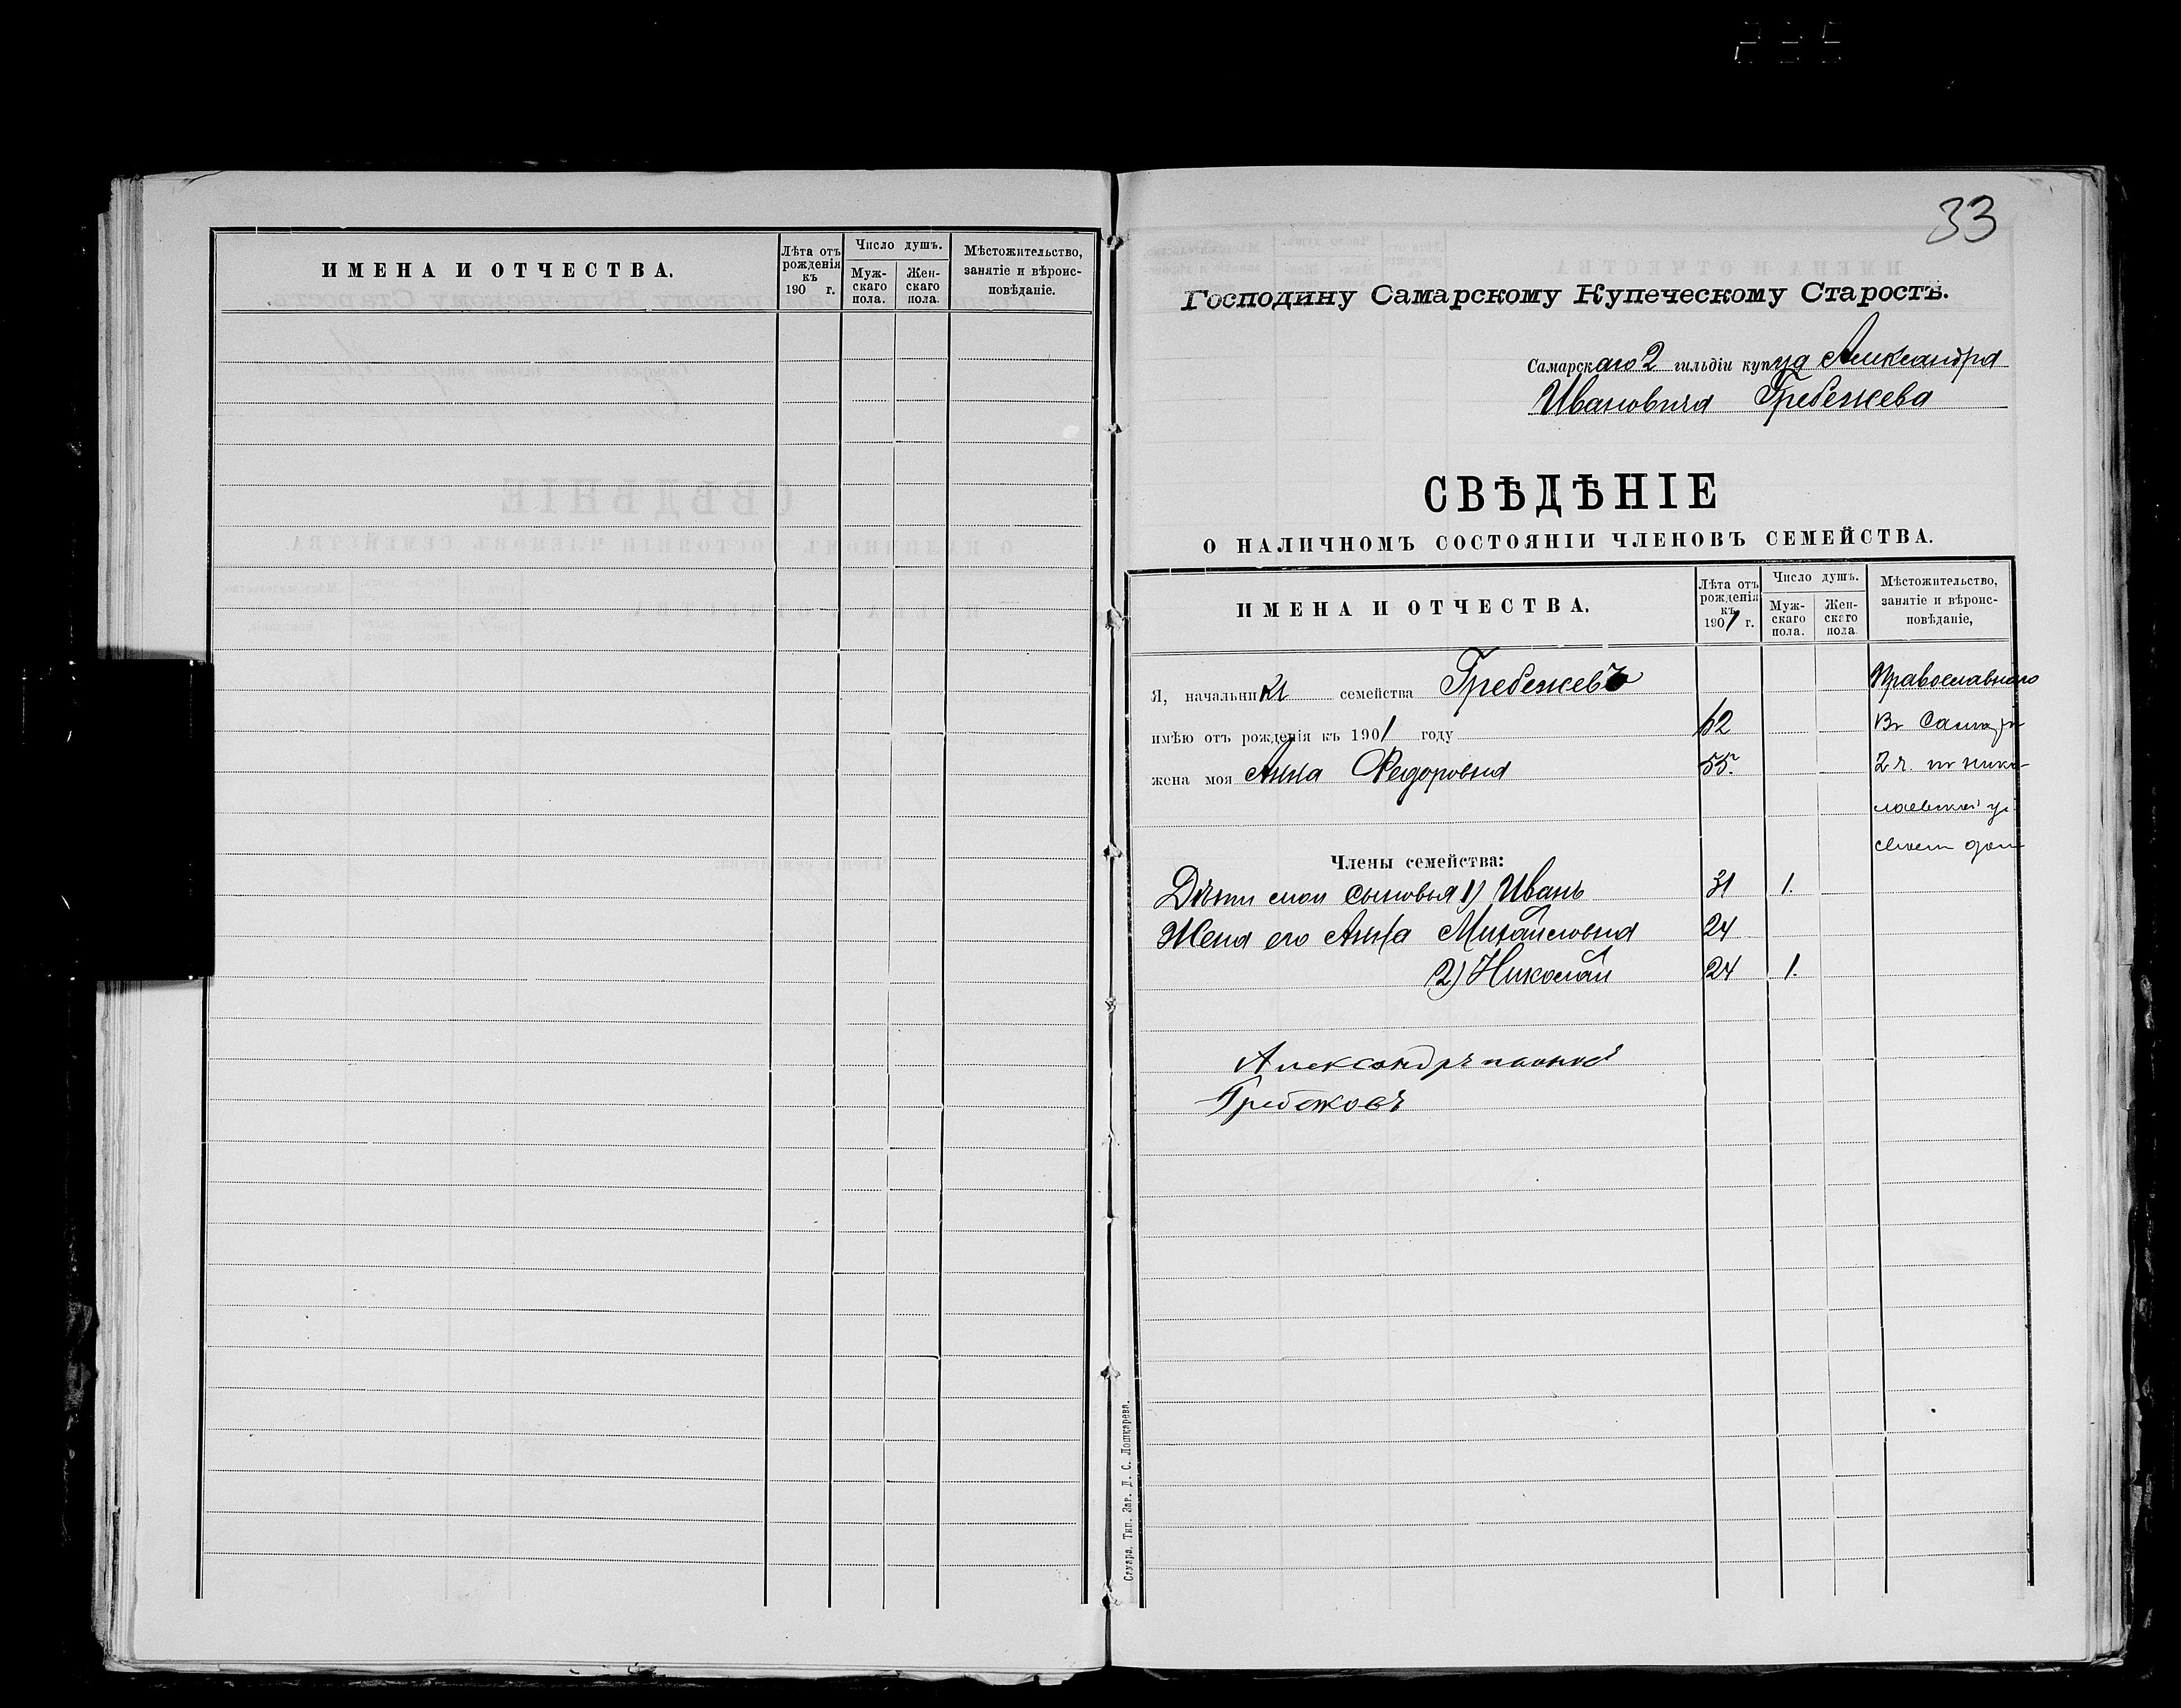 ИМЕНА И ОТЧЕСТВА.
Лѣта отъ рожденія къ 190 г.
Число душъ.
Муж-скаго пола.
Жен-скаго пола.
Мѣстожительство, занятіе и вѣроис-повѣданіе.
33
Господину Самарскому Купеческому Старостѣ.
Самарскаго 2 гильдіи купца Александра
Ивановича Гребежева
СВѢДѢНІЕ
О НАЛИЧНОМЪ СОСТОЯНІИ ЧЛЕНОВЪ СЕМЕЙСТВА.
ИМЕНА И ОТЧЕСТВА.
Лѣта отъ рожденія къ 1901 г.
Число душъ.
Муж-скаго пола.
Жен-скаго пола
Мѣстожительство, занятіе и вѣроис-повѣданіе,
Я, начальникъ семейства Гребежевъ Православнаго
имѣю отъ рожденія къ 1901 году 62 Въ Самарѣ
жена моя Анна Федоровна 55. 2 ч. по Нико-
лаевской ул
своем дом
Члены семейства:
Дѣти мои сыновья 1) Иванъ 31 1.
Жена его Анна Михайловна 24
2) Николай 24 1.
Александръ
Гребежовъ
Самара. Тип. Зав. Д. С. Лошкарева.